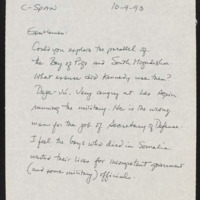 C-SPAN 10-9-93
Gentlemen:
Could you explore the parallel of
the Bay of Pigs and South Mogadishu
What excuse did Kennedy use then?
Very angry at Les Aspin
running the military. He is the wrong
man for the job of Secretary of Defense
I feel the boys who died in Somalia
wasted their lives for incompetent government
(and some military) officials.